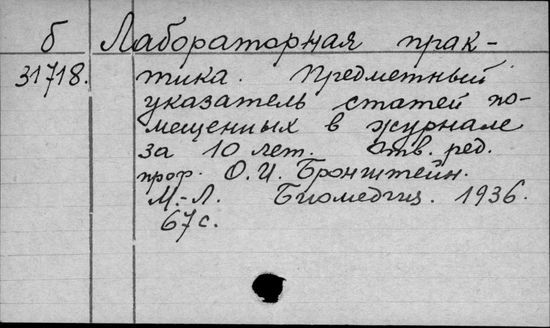 б Лабораторная прак-
31718. тика. Предметный
указатель статей по-
мещенных в журнале
за 10 лет. Отв. ред.
проф. О. И. Бронштейн.
М.-Л. Биомедгиз. 1936.
67 с.